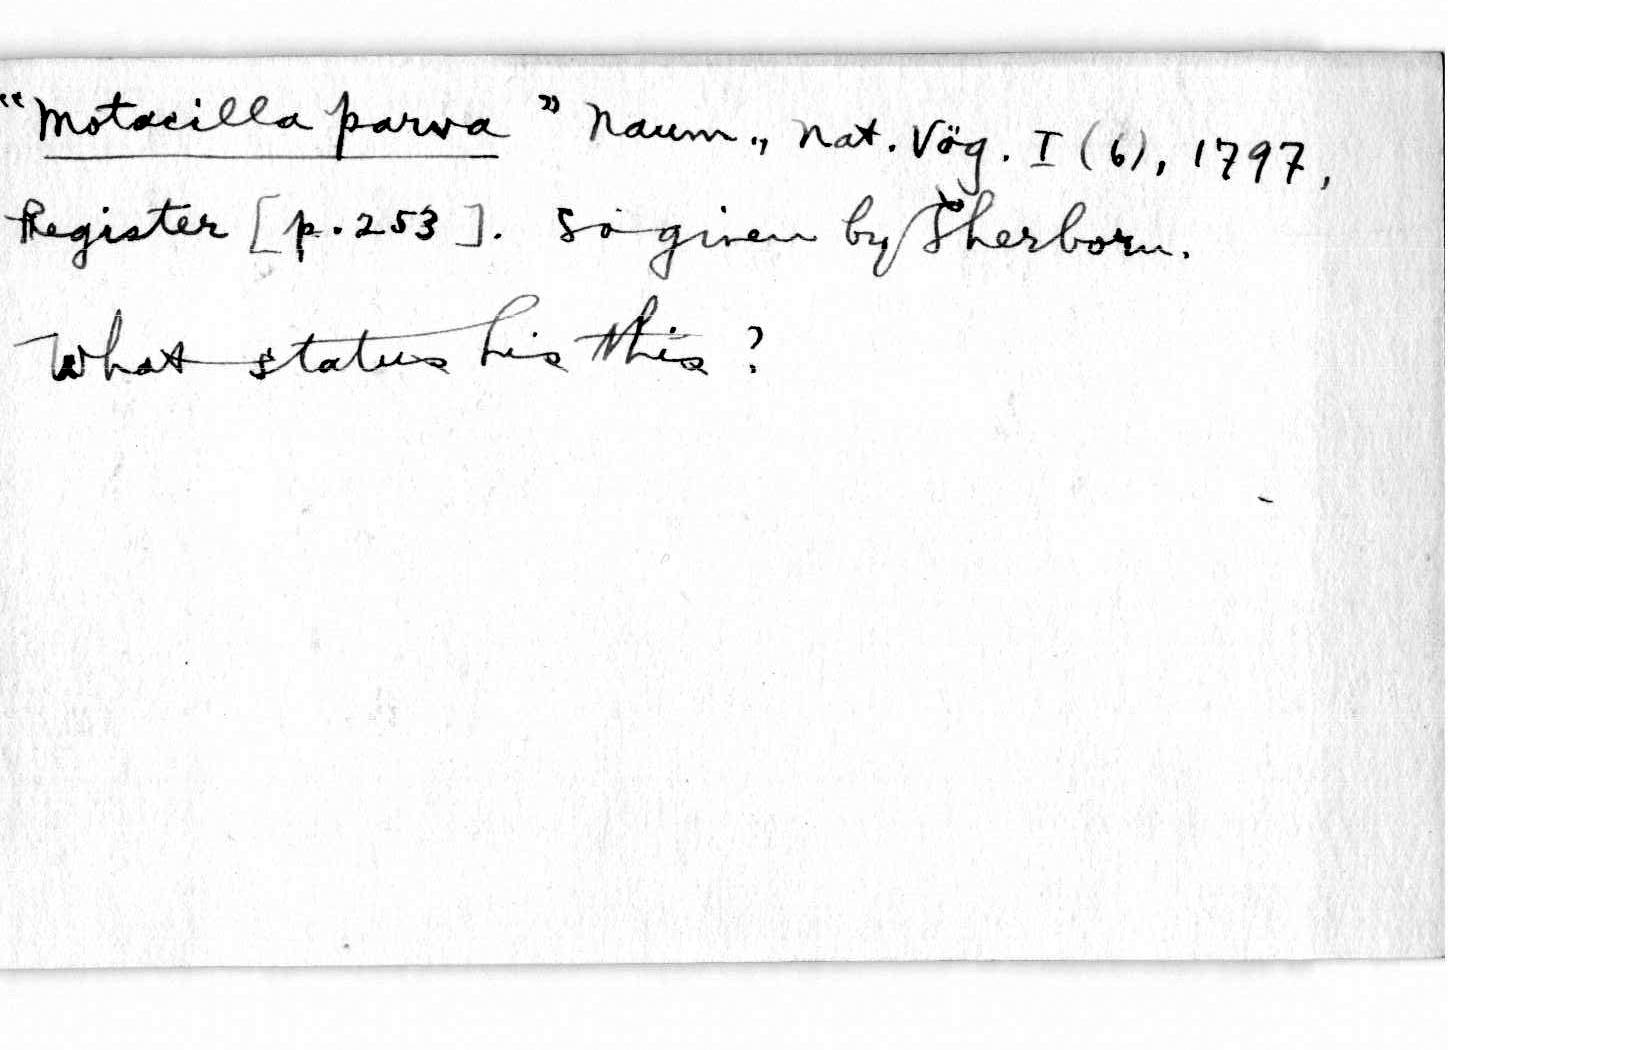 "Motacilla parva" Naum., Nat. Vög. I (6), 1797,
Register [p. 253]. So given by Sherborn.
What status his this?